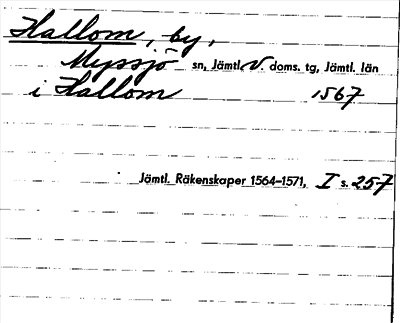 Hallom, by,
Myssjö sn, Jämtl. V. doms. tg, Jämtl. län
i Hallom 1567
Jämtl. Räkenskaper 1564–1571, I s. 257